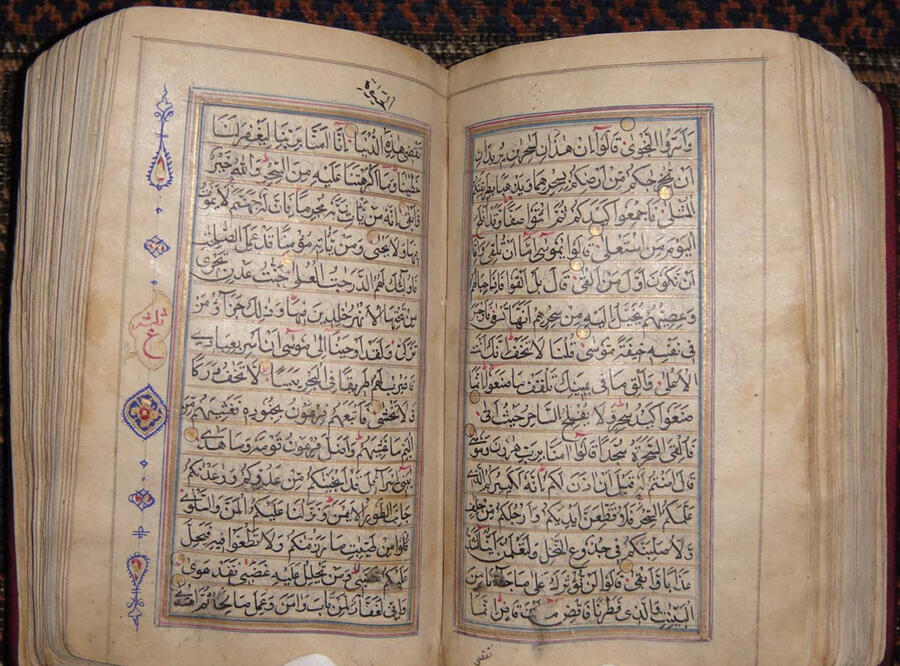 وَاَسَرُّوا النَّجْوٰى قَالُوٓا اِنْ هٰذٰنِ لَسٰحِرٰنِ يُرِيدَانِ
اَنْ يُخْرِجٰكُمْ مِنْ اَرْضِكُمْ بِسِحْرِهِمَا وَيَذْهَبَا بِطَرِيقَتِكُمُ
الْمُثْلٰى فَاَجْمِعُوا كَيْدَكُمْ ثُمَّ ائْتُوا صَفًّا وَقَدْ اَفْلَحَ
الْيَوْمَ مَنِ اسْتَعْلٰى قَالُوا يٰمُوسٰٓى اِمَّٓا اَنْ تُلْقِىَ وَاِمَّٓا
اَنْ نَكُونَ اَوَّلَ مَنْ اَلْقٰى قَالَ بَلْ اَلْقُوا فَاِذَا حِبَالُهُمْ
وَعِصِيُّهُمْ يُخَيَّلُ اِلَيْهِ مِنْ سِحْرِهِمْ اَنَّهَا تَسْعٰى فَاَوْجَسَ
فِى نَفْسِهِ خِيفَةً مُوسٰى قُلْنَا لَا تَخَفْ اِنَّكَ اَنْتَ
الْاَعْلٰى وَاَلْقِ مَا فِى يَمِينِكَ تَلْقَفْ مَا صَنَعُوا اِنَّمَا
صَنَعُوا كَيْدُ سٰحِرٍ وَلَا يُفْلِحُ السَّاحِرُ حَيْثُ اَتٰى
فَاُلْقِىَ السَّحَرَةُ سُجَّدًا قَالُوٓا اٰمَنَّا بِرَبِّ هٰرُونَ وَمُوسٰى
قَالَ اٰمَنْتُمْ لَهُ قَبْلَ اَنْ اٰذَنَ لَكُمْ اِنَّهُ لَكَبِيرُكُمُ الَّذِى
عَلَّمَكُمُ السِّحْرَ فَلَاُقَطِّعَنَّ اَيْدِيَكُمْ وَاَرْجُلَكُمْ مِنْ خِلَافٍ
وَلَاُصَلِّبَنَّكُمْ فِى جُذُوعِ النَّخْلِ وَلَتَعْلَمُنَّ اَيُّنَا اَشَدُّ
عَذَابًا وَاَبْقٰى قَالُوا لَنْ نُؤْثِرَكَ عَلٰى مَا جَاءَنَا مِنَ
الْبَيِّنٰتِ وَالَّذِى فَطَرَنَا فَاقْضِ مَا اَنْتَ قَاضٍ اِنَّمَا
تقضى
الْحَيٰوةَ
تَقْضِى هٰذِهِ الدُّنْيَا اِنَّا اٰمَنَّا بِرَبِّنَا لِيَغْفِرَ لَنَا
خَطٰيٰنَا وَمَا اَكْرَهْتَنَا عَلَيْهِ مِنَ السِّحْرِ وَاللّٰهُ خَيْرٌ
وَاَبْقٰى اِنَّهُ مَنْ يَأْتِ رَبَّهُ مُجْرِمًا فَاِنَّ لَهُ جَهَنَّمَ لَا يَمُوتُ
فِيهَا وَلَا يَحْيٰى وَمَنْ يَأْتِهِ مُؤْمِنًا قَدْ عَمِلَ الصّٰلِحٰتِ
فَاُولٰٓئِكَ لَهُمُ الدَّرَجٰتُ الْعُلٰى جَنّٰتُ عَدْنٍ تَجْرِى
مِنْ تَحْتِهَا الْاَنْهٰرُ خٰلِدِينَ فِيهَا وَذٰلِكَ جَزٰٓؤُا مَنْ
تَزَكّٰى وَلَقَدْ اَوْحَيْنَا اِلٰى مُوسٰٓى اَنْ اَسْرِ بِعِبَادِى
فَاضْرِبْ لَهُمْ طَرِيقًا فِى الْبَحْرِ يَبَسًا لَا تَخٰفُ دَرَكًا
وَلَا تَخْشٰى فَاَتْبَعَهُمْ فِرْعَوْنُ بِجُنُودِهِ فَغَشِيَهُمْ مِنَ
الْيَمِّ مَا غَشِيَهُمْ وَاَضَلَّ فِرْعَوْنُ قَوْمَهُ وَمَا هَدٰى
يٰبَنِىٓ اِسْرَٓاءِيلَ قَدْ اَنْجَيْنٰكُمْ مِنْ عَدُوِّكُمْ وَوٰعَدْنٰكُمْ
جَانِبَ الطُّورِ الْاَيْمَنَ وَنَزَّلْنَا عَلَيْكُمُ الْمَنَّ وَالسَّلْوٰى
كُلُوا مِنْ طَيِّبٰتِ مَا رَزَقْنٰكُمْ وَلَا تَطْغَوْا فِيهِ فَيَحِلَّ
عَلَيْكُمْ غَضَبِى وَمَنْ يَحْلِلْ عَلَيْهِ غَضَبِى فَقَدْ هَوٰى
وَاِنِّى لَغَفَّارٌ لِمَنْ تَابَ وَاٰمَنَ وَعَمِلَ صَالِحًا ثُمَّ اهْتَدٰى